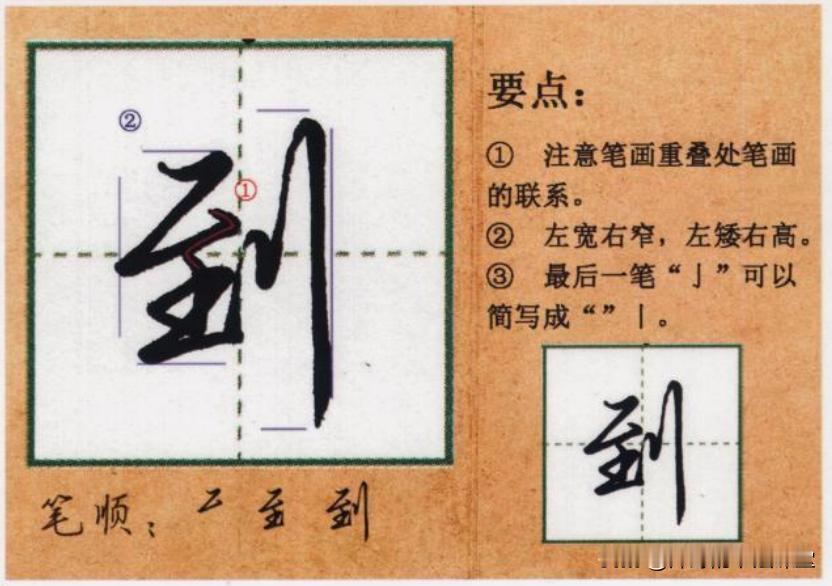 ②
①
到
笔顺：
到
要点：
① 注意笔画重叠处笔画
的联系。
② 左宽右窄，左矮右高。
③ 最后一笔“亅”可以
简写成“”丨。
到